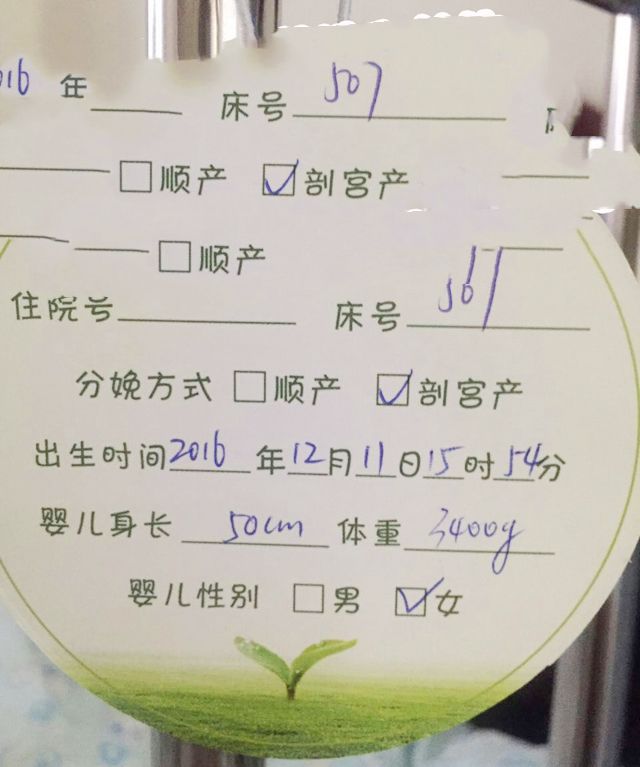 016 年 床号 507
□顺产 ☑剖宫产
□顺产
住院号 床号 507
分娩方式 □顺产 ☑剖宫产
出生时间2016年12月11日15时54分
婴儿身长 50cm 体重 3400g
婴儿性别 □男 ☑女